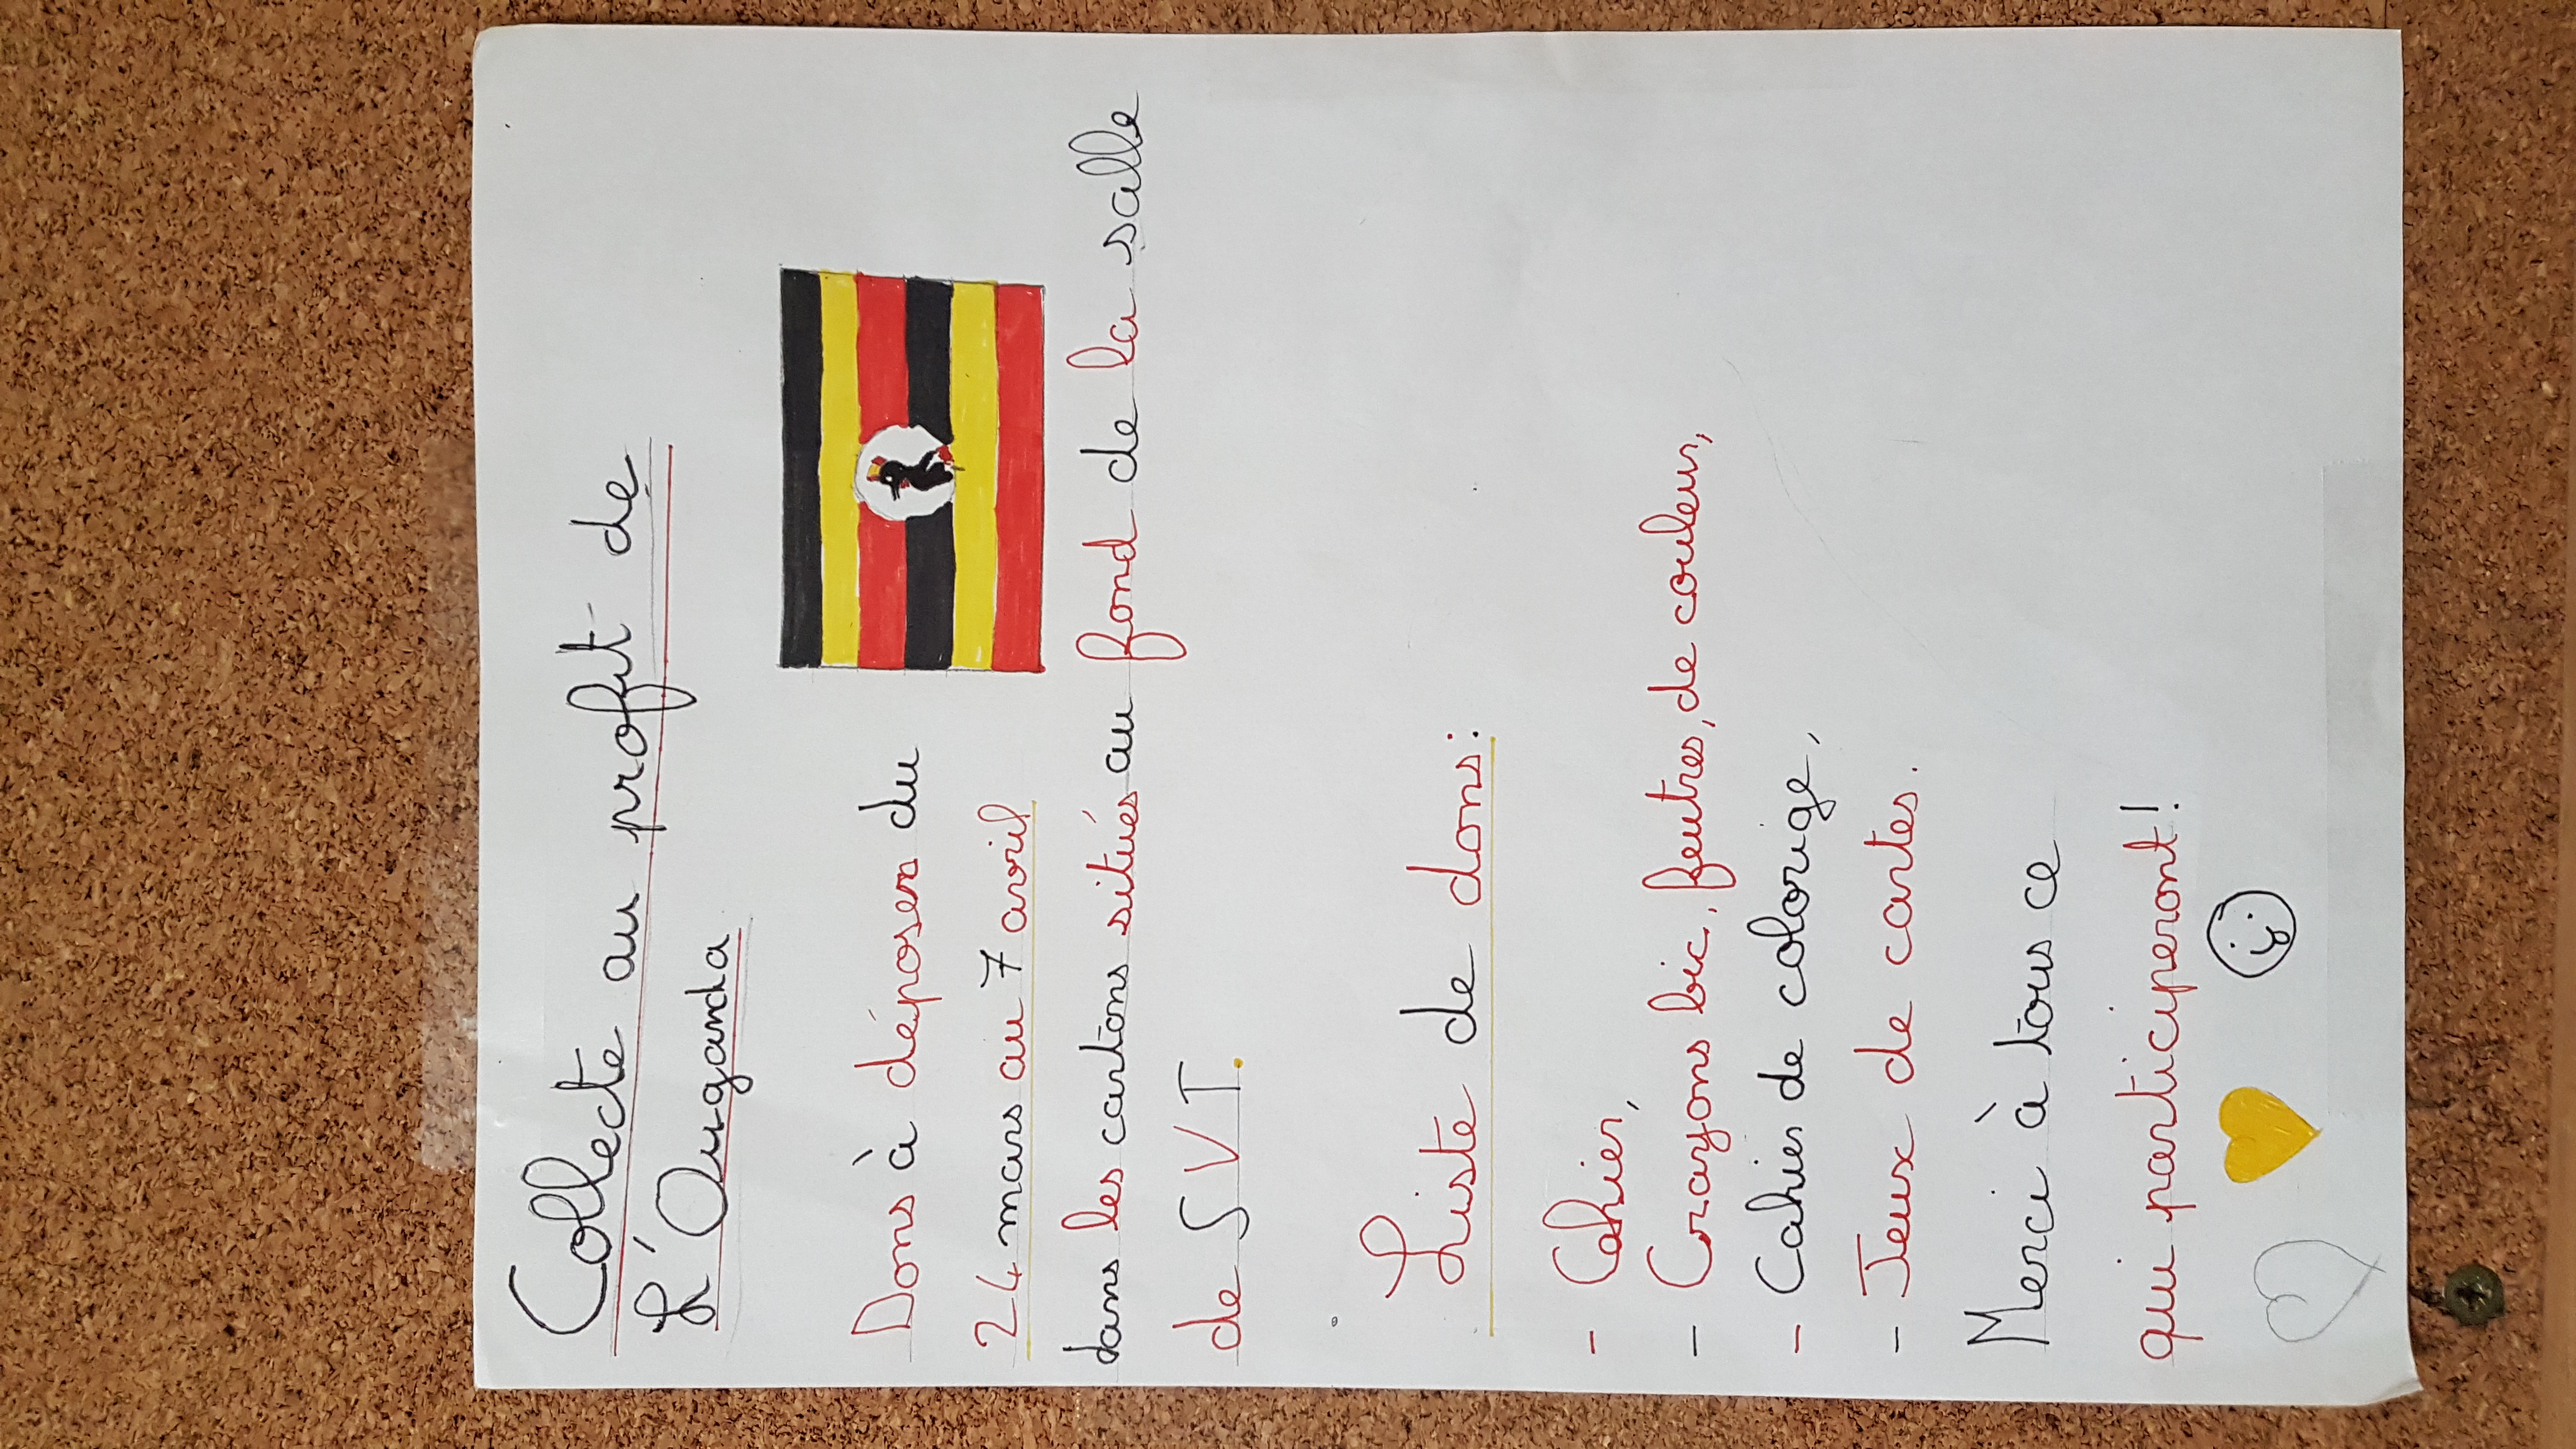 Collecte au profit de
L'Ouganda
Dons à déposer du
24 mars au 7 avril
dans les cartons situés au fond de la salle
de SVT.
Liste de dons:
- Cahier,
- Crayons bic, feutres, de couleur,
- Cahier de colorige,
- Jeux de cartes.
Merci à tous ce
qui participeront!